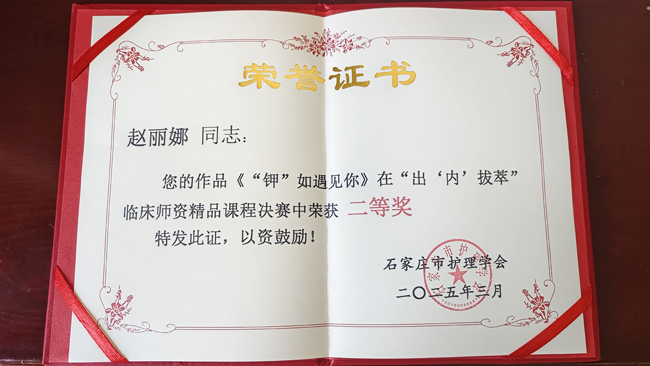 荣誉证书
赵丽娜 同志：
您的作品《“钾”如遇见你》在“出‘内’拔萃”
临床师资精品课程决赛中荣获 二等奖
特发此证，以资鼓励！
石家庄市护理学会
二〇二五年三月